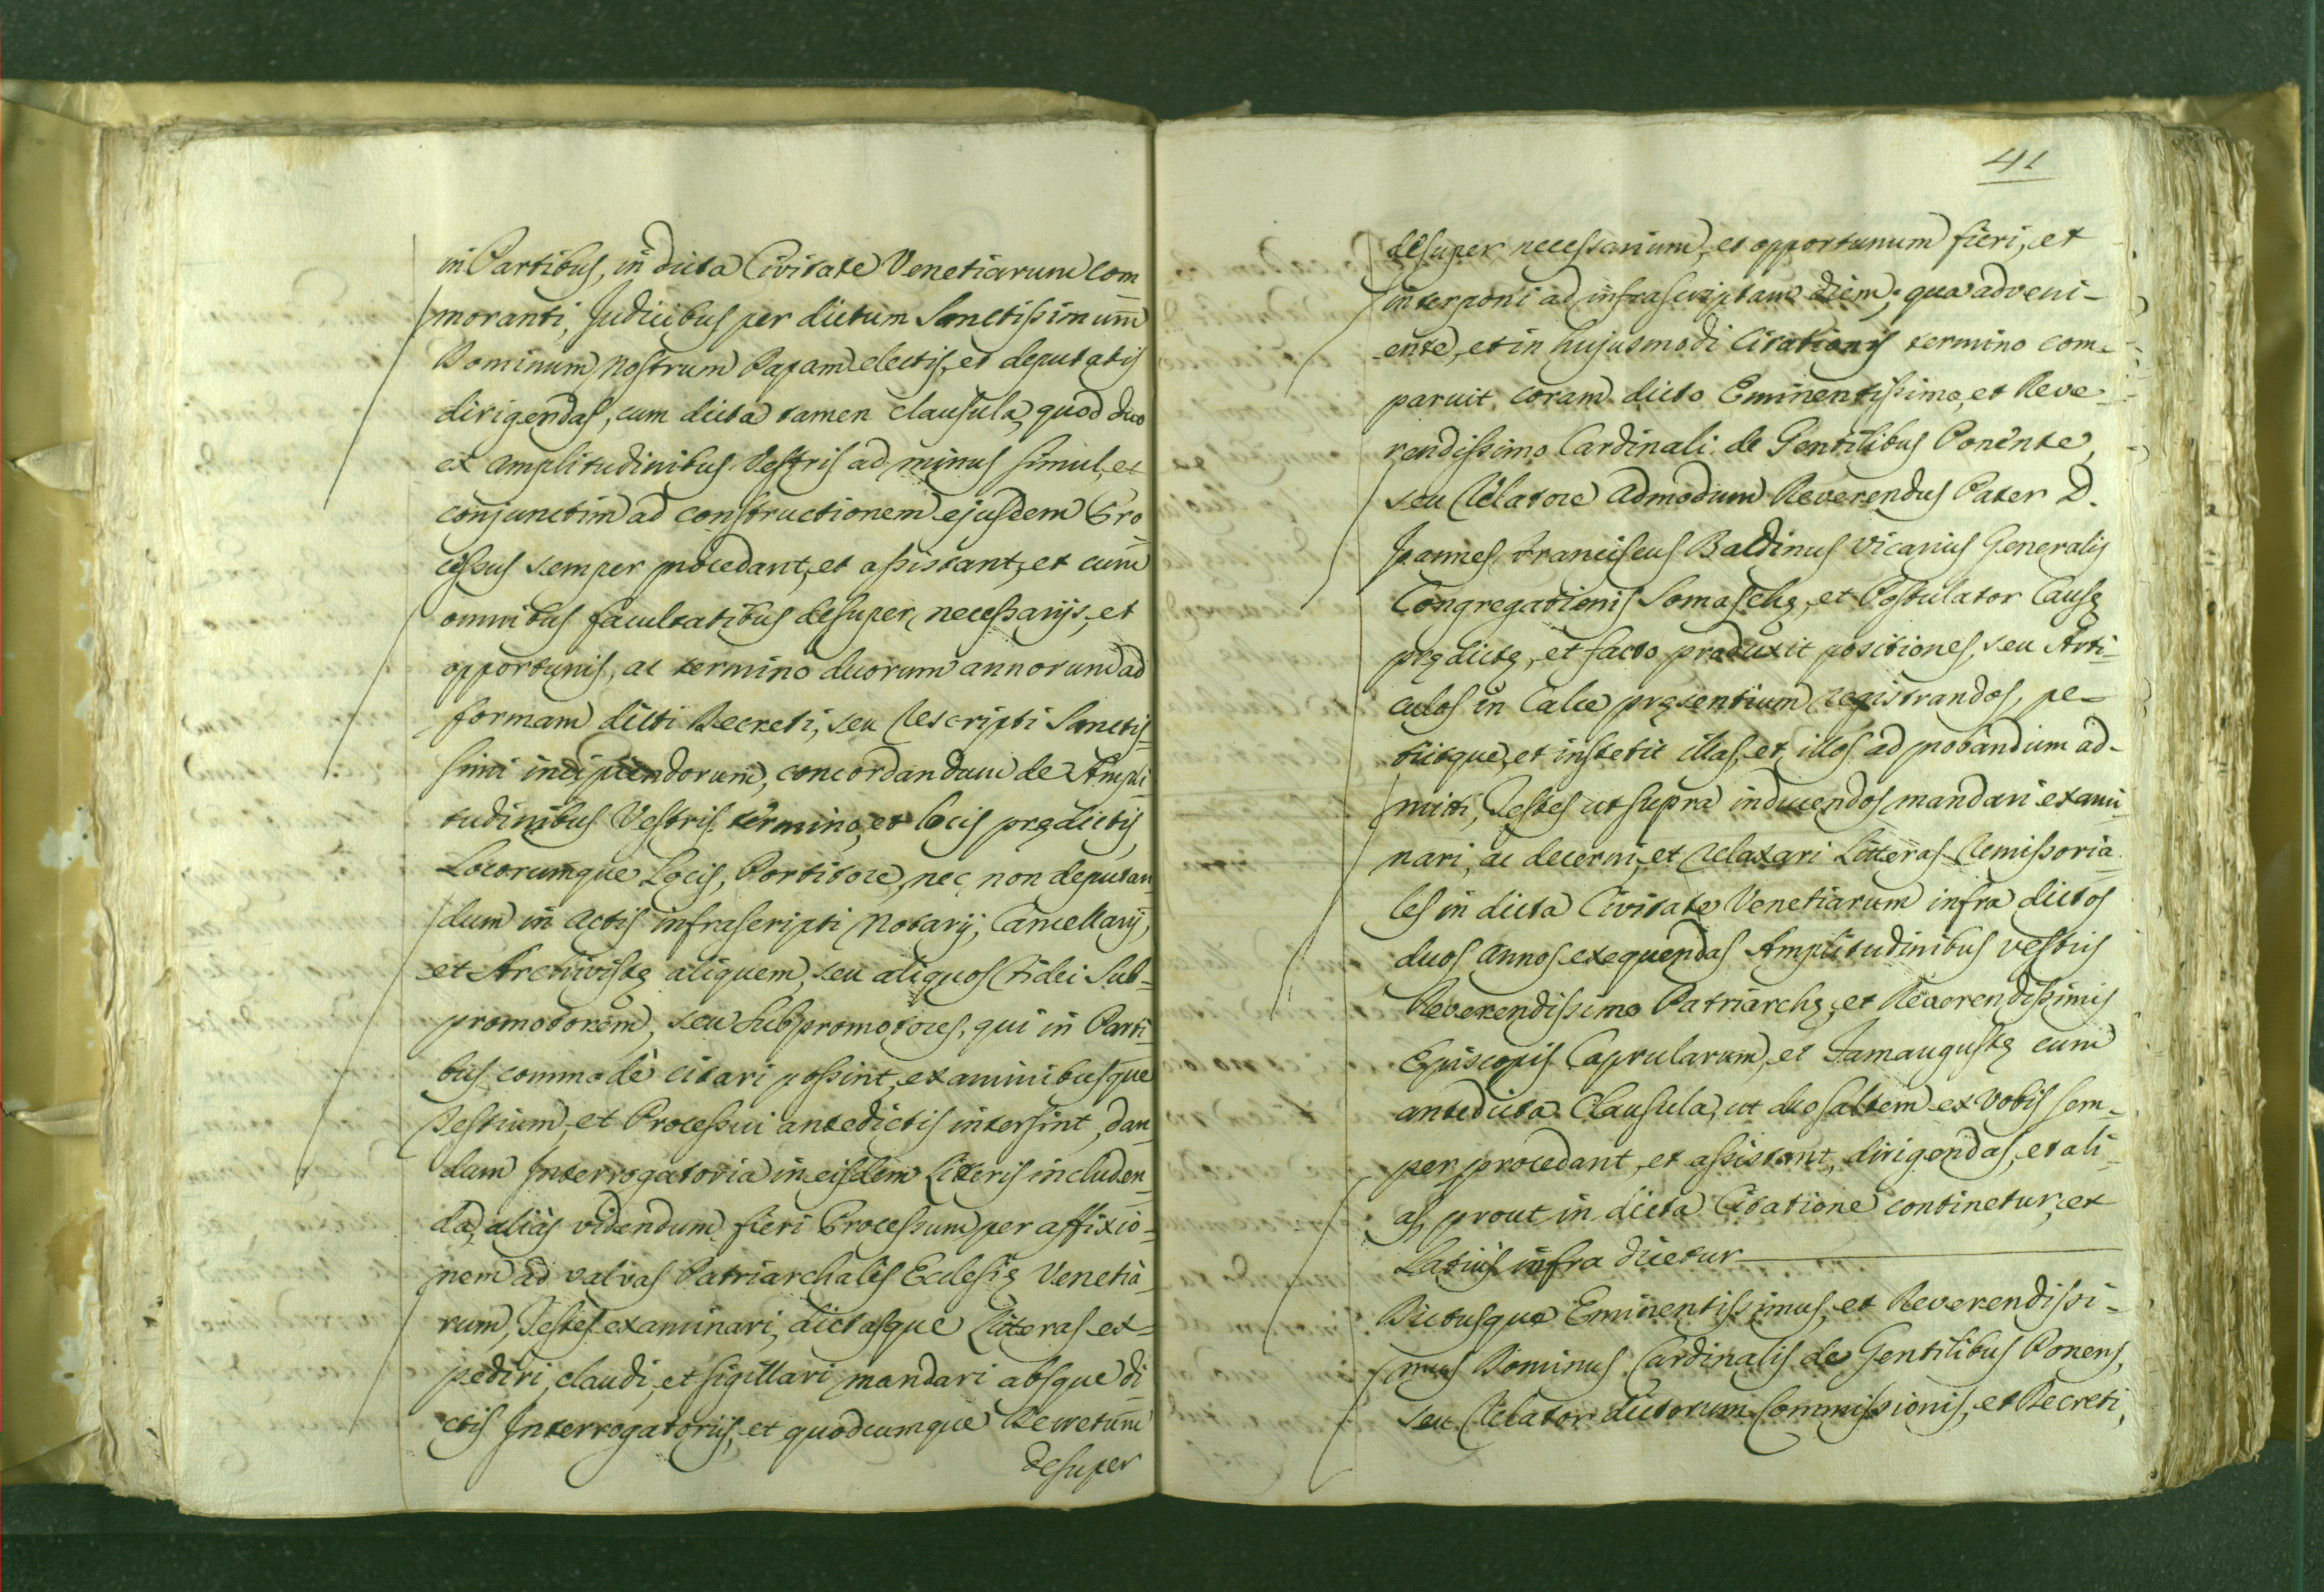 in Partibus, in dicta Civitate Venetiarum com
moranti, Judicibus per dictum Sanctissimum
Dominum nostrum Papam electis, et deputatis
dirigendas, cum dicta tamen clausula, quod duo
ex Amplitudinibus Vestris ad minus simul, et
conjunctim ad constructionem ejusdem Pro
cessus semper procedant, et assistant, et cum
omnibus facultatibus desuper necessarijs, et
opportunis, ac termino duorum annorum ad
formam dicti Decreti, seu Rescripti Sanctis-
simi incipiendorum, concordandum de Ampli-
tudinibus Vestris termino, et locis prędictis
Locorumque Locis, Portitore, nec non deputan
dum in Actis infrascripti Notarij, Cancellarij,
et Archivistę aliquem, seu aliquos Fidei Sub-
promotorem, seu Subpromotores, qui in Parti-
bus commodè citari possint, examinibusque
Testium, et Processui antedictis intersint, dan-
dum Interrogatoria in eisdem Literis includen-
da, aliàs videndum fieri Processum per affixio-
nem ad valvas Patriarchalis Ecclesię Venetia-
rum, Testes examinari, dictasque Litteras ex-
pediri, claudi, et sigillari mandari absque di
ctis Interrogatorijs, et quodcumque Decretum
desuper
41
desuper necessarium, et opportunum fieri, et
interponi ad infrascriptam diem; qua adveni-
ente, et in hujusmodi Citationis termino com-
paruit coram dicto Eminentissimo, et Reve-
rendissimo Cardinali de Gentilibus Ponente,
seu Relatore Admodum Reverendus Pater D.
Joannes Franciscus Baldinus Vicarius Generalis
Congregationis Somaschę, et Postulator Causę
prędictę, et facto produxit positiones, seu Arti-
culos in Calce pręsentium registrandos, pe-
tiitque, et institit illas, et illos ad probandum ad-
mitti, Testes ut supra inducendos mandari exami-
nari, ac decerni, et relaxari Litteras Remissoria-
les in dicta Civitate Venetiarum infra dictos
duos Annos exequendas Amplitudinibus vestris
Reverendissimo Patriarchę, et Reverendissimis
Episcopis Caprularum, et Jamaugustę cum
antedicta Clausula, ut duo saltem ex Vobis sem-
per procedant, et assistant, dirigendas, et ali-
as, prout in dicta Citatione continetur, et
Latius infra dicetur
Dictusque Eminentissimus, et Reverendissi-
mus Dominus Cardinalis de Gentilibus Ponens,
seu Relator dictorum Commissionis, et Decreti,